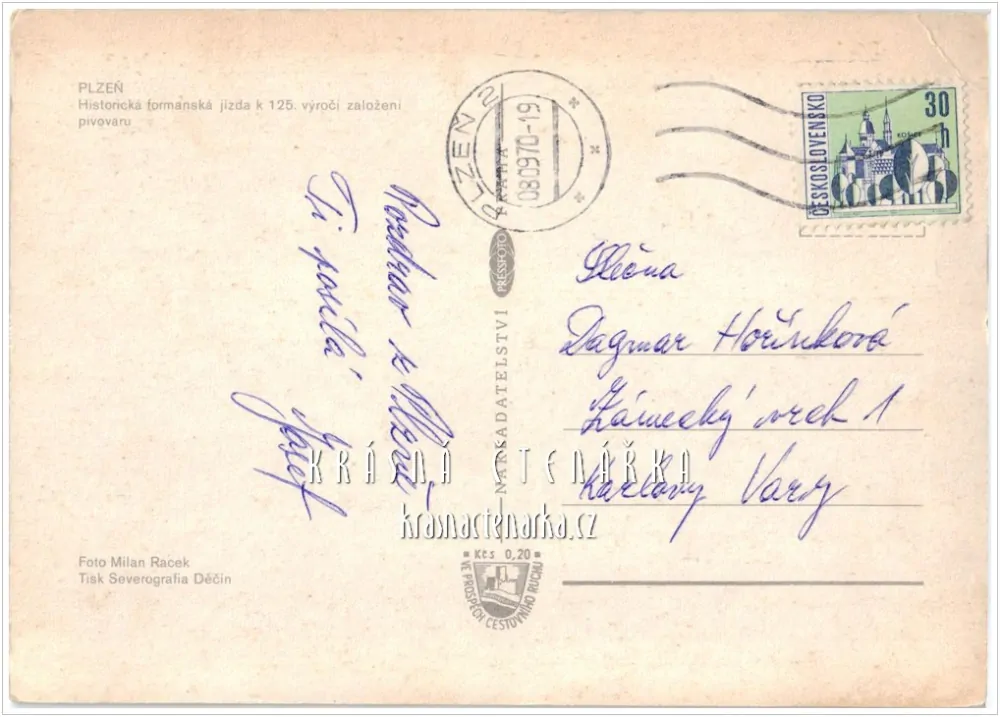 PLZEŇ
Historická formanská jízda k 125. výročí založení
pivovaru
PLZEŇ 2
080970-19
ČESKOSLOVENSKO
30
h
KOŠICE
Pozdrav z Plzně
Ti posílá
Josef
NAKLADATELSTVÍ PRESSFOTO PRAHA
Slečna
Dagmar Hořínková
Zámecký vrch 1
Karlovy Vary
KRÁSNÁ ČTENÁŘKA
krasnactenarka.cz
Foto Milan Racek
Tisk Severografia Děčín
Kčs 0,20
VE PROSPĚCH CESTOVNÍHO RUCHU